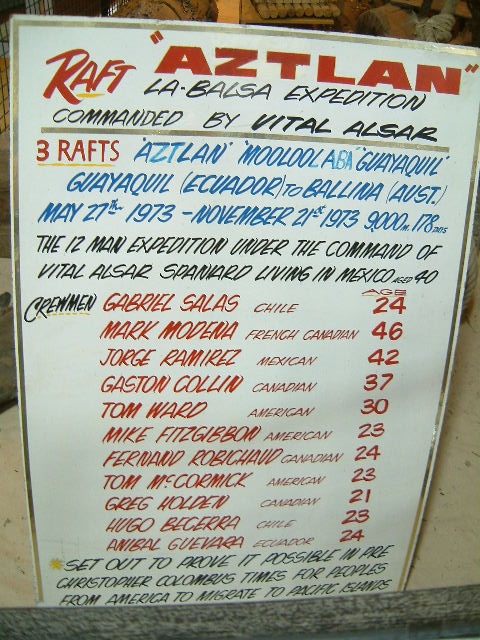 RAFT "AZTLAN"
LA-BALSA EXPEDITION
COMMANDED BY VITAL ALSAR
3 RAFTS "AZTLAN" "MOOLOOLABA" "GUAYAQUIL"
GUAYAQUIL (ECUADOR) TO BALLINA (AUST.)
MAY 27TH 1973 - NOVEMBER 21ST 1973 9,000M. 178 DAYS
THE 12 MAN EXPEDITION UNDER THE COMMAND OF
VITAL ALSAR SPANIARD LIVING IN MEXICO AGED 40
AGE
CREWMEN GABRIEL SALAS CHILE 24
MARK MODENA FRENCH CANADIAN 46
JORGE RAMIREZ MEXICAN 42
GASTON COLLIN CANADIAN 37
TOM WARD AMERICAN 30
MIKE FITZGIBBON AMERICAN 23
FERNAND ROBICHAUD CANADIAN 24
TOM McCORMICK AMERICAN 23
GREG HOLDEN CANADIAN 21
HUGO BECERRA CHILE 23
ANIBAL GUEVARA ECUADOR 24
*SET OUT TO PROVE IT POSSIBLE IN PRE
CHRISTOPHER COLOMBUS TIMES FOR PEOPLES
FROM AMERICA TO MIGRATE TO PACIFIC ISLANDS